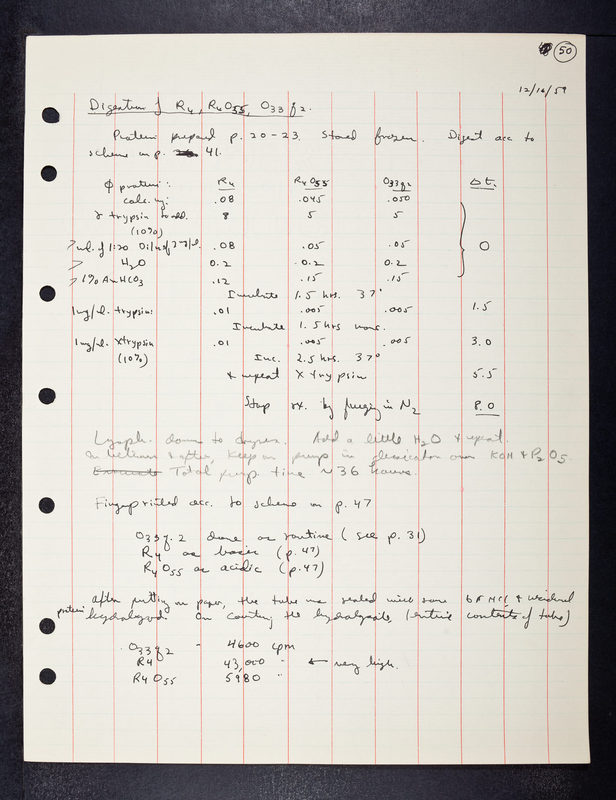 50
12/16/59
Digestion of R4, R4O55, O33g2.
Protein prepared p. 20-23. Stored frozen. Digest acc to
scheme on p. 41.
φ protein: R4 R4O55 O33g2 Δt.
calc. mg: .08 .045 .050
γ trypsin to add. 8 5 5
(10%)
.08 .05 .05 0
H2O 0.2 0.2 0.2
1% AmHCO3 .12 .15 .15
Incubate 1.5 hrs. 37°
1mg/ml. trypsin: .01 .005 .005 1.5
Incubate 1.5 hrs more.
1mg/ml. Xtrypsin .01 .005 .005 3.0
(10%)
Inc. 2.5 hrs. 37°
& repeat X trypsin 5.5
Stop rx. by freezing in N2 8.0
Lyoph. down to dryness. Add a little H2O & repeat.
In between & after, keep on pump in dessicator over KOH & P2O5.
Total pump time ~ 36 hours.
Fingerprinted acc. to scheme on p. 47
O33g.2 done as routine (see p. 31)
R4 as basic (p. 47)
R4O55 as acidic (p. 47)
after putting on paper, the tube was sealed with some 6N HCl &
protein hydrolyzed. On counting the hydrolysate, (entire contents of tube)
O33g2 - 4600 cpm
R4 43,000 " ← very high.
R4O55 5980 "